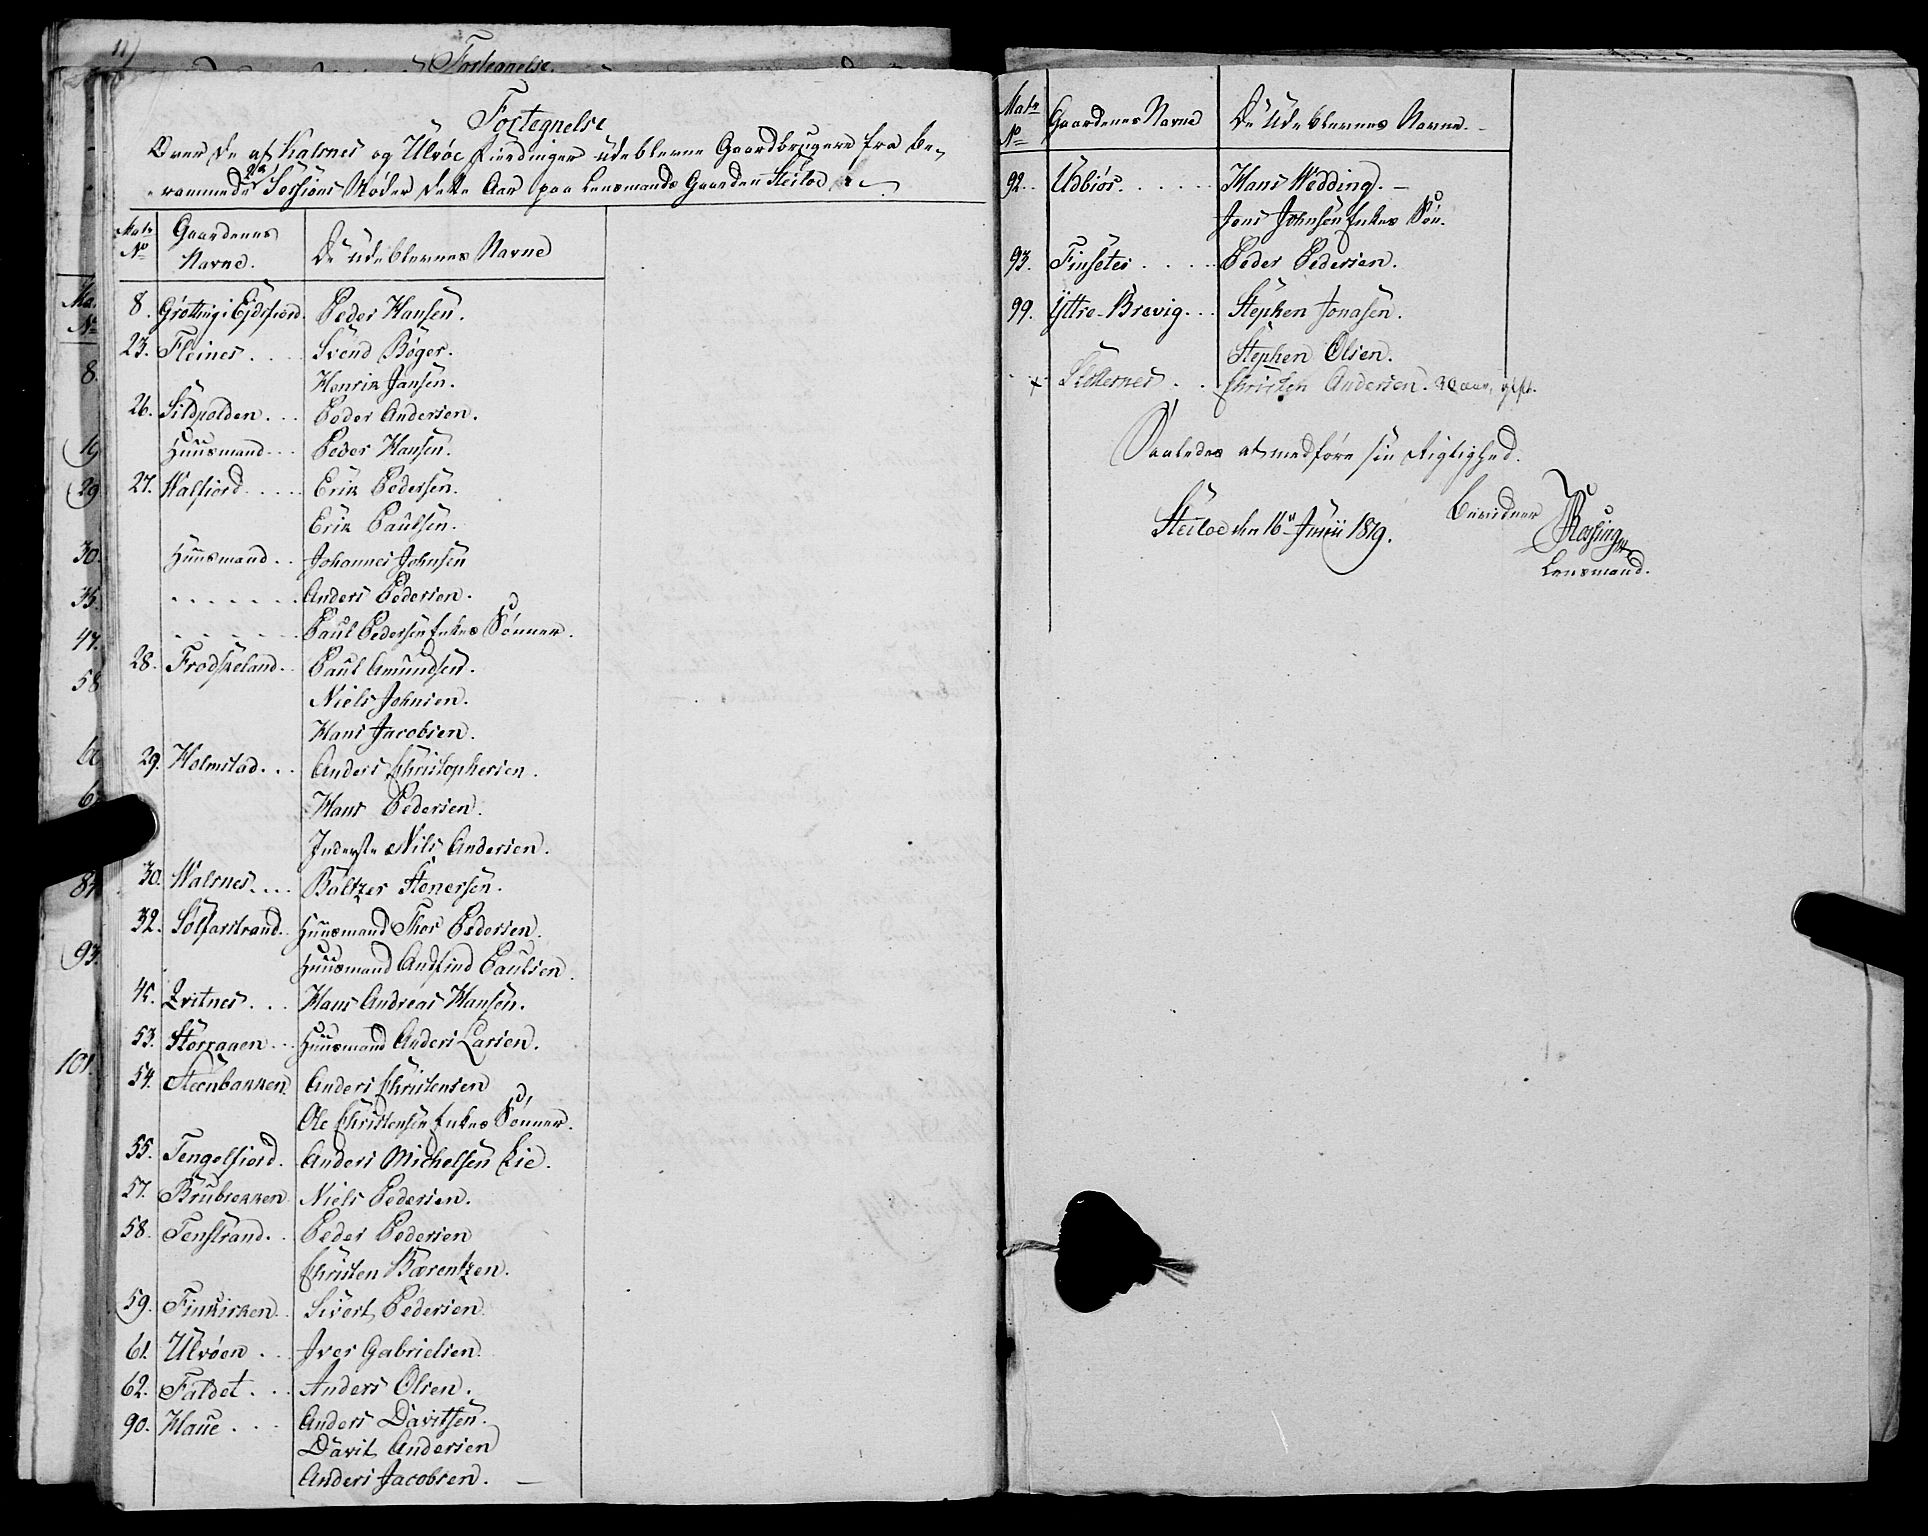 11)
Fortegnelse
Fortegnelse
Over de af Kalsnes og Ulvøe Fierdinger udeblevne Gaardbrugere fra be-
rammede 2de Sessions Møder dette Aar paa Lensmands Gaarden Steiloe
Matr No
Gaardenes Navne.
De udeblevnes Navne
8. Grøtting i Ejdsfiord. Peder Hansen.
23. Fleines .... Svend Bøger.
Henrik Jansen.
26. Sildpolden ... Peder Andersen.
Huusmand ... Peder Hansen.
27. Walfiord ..... Erik Pedersen.
Erik Paulsen.
Huusmand .. Johannes Johnsen
....... Anders Pedersen.
...... Paul Pedersen Enkes Sønner.
28. Frodskeland .. Paul Amundsen.
Niels Johnsen.
Hans Jacobsen.
29. Holmstad ... Anders Christophersen.
Hans Pedersen.
Inderste Nils Andersen.
30. Walsnes .... Baltzer Stenersen.
32. Solfarstrand .. Huusmand Thor Pedersen.
Huusmand Andfind Paulsen.
45. Qvitnes .... Hans Andreas Hansen.
53. Storranen ... Huusmand Anders Larsen.
54. Steenbakken. Anders Christensen
Ole Christensen Enkes Sønner.
55. Tengelfiord. Anders Michelsen Lie.
57. Brubrekken Niels Pedersen.
58. Tenstrand. .. Peder Pedersen
Christen Bærentzen.
59. Finkirken .. Sivert Pedersen
61. Ulvøen ... Iver Gabrielsen
62. Faldet ... Anders Olsen.
90. Haue .... Anders Davitsen.
Davit Andersen
Anders Jacobsen. —
Ma.
No
8.
19
29
30.
35.
47.
58
93.
101.
Matr No
Gaardenes Navne
De Udeblevnes Navne.
92. Udbiøs ...... Hans Wedding. —
Jens Johnsen Enkes Søn.
93. Finsæter ..... Peder Pedersen.
99. Yttre-Brevig ... Stephen Jonasen.
Stephen Olsen.
+ Skiternes .. Christen Andersen. aar, gift.
Saaledes at medføre sin Rigtighed.
Steiloe den 16de Junii 1819.
Bevidner
Rossing
Lensmand.